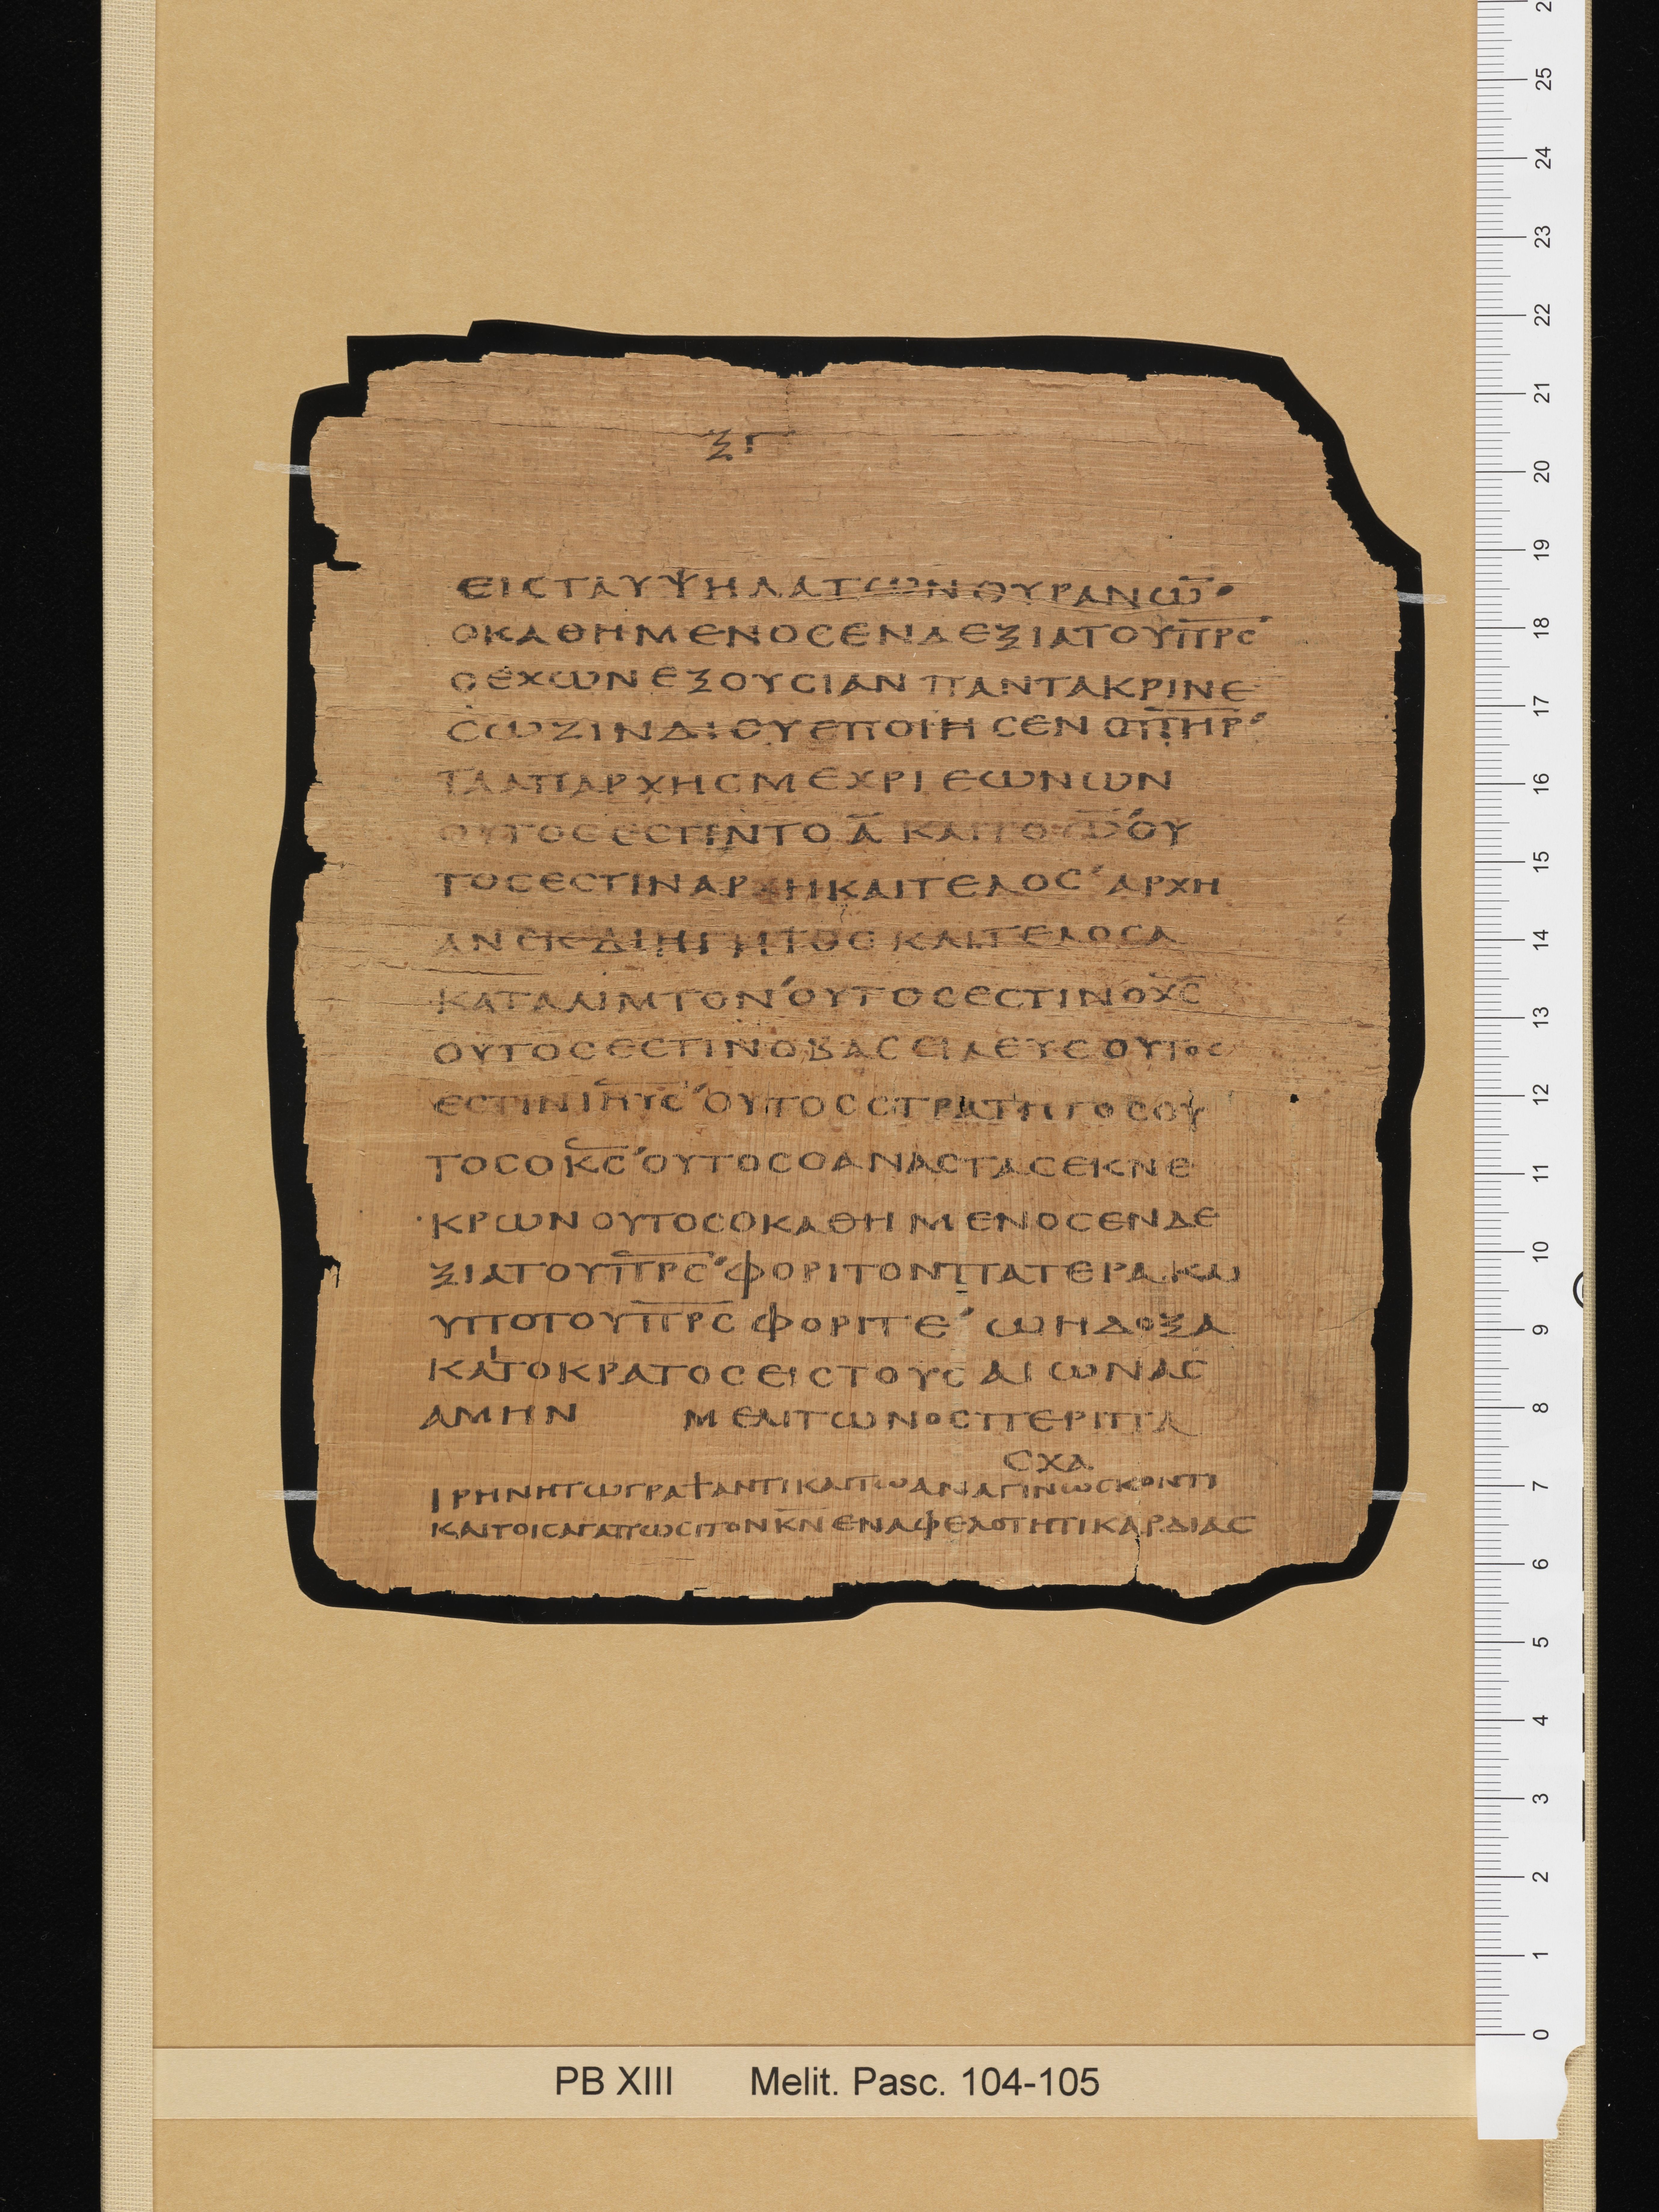 ξγ
ΕΙϹΤΑΥΨΗΛΑΤΩΝΟΥΡΑΝΩ̅
ΟΚΑΘΗΜΕΝΟϹΕΝΔΕΞΙΑΤΟΥΠ̅Ρ̅Ϲ̅
ΟΕΧΩΝΕΞΟΥϹΙΑΝΠΑΝΤΑΚΡΙΝΕ
ϹΩΖΙΝΔΙΟΥΕΠΟΙΗϹΕΝΟΠ̅Η̅Ρ̅
ΤΑΑΠΑΡΧΗϹΜΕΧΡΙΕΩΝΩΝ
ΟΥΤΟϹΕϹΤΙΝΤΟΑ̅ΚΑΙΤΟΩ̅ʼΟΥ
ΤΟϹΕϹΤΙΝΑΡΧΗΚΑΙΤΕΛΟϹʼΑΡΧΗ
ΑΝΕΚΔΙΗΓΗΤΟϹΚΑΙΤΕΛΟϹΑ
ΚΑΤΑΛΙΜΤΟΝʼΟΥΤΟϹΕϹΤΙΝΟΧ̅Ϲ̅
ΟΥΤΟϹΕϹΤΙΝΟΒΑϹΕΙΛΕΥϹΟΥΤΟϹ
ΕϹΤΙΝΙ̅Η̅Υ̅Ϲ̅ʼΟΥΤΟϹϹΤΡΑΤΗΓΟϹΟΥ
ΤΟϹΟΚ̅Ϲ̅ʼΟΥΤΟϹΟΑΝΑϹΤΑϹΕΚΝΕ
ΚΡΩΝΟΥΤΟϹΟΚΑΘΗΜΕΝΟϹΕΝΔΕ
ΞΙΑΤΟΥΠ̅Ρ̅Ϲ̅ʼΦΟΡΙΤΟΝΠΑΤΕΡΑΚΑΙ
ΥΠΟΤΟΥΠ̅Ρ̅Ϲ̅ΦΟΡΙΤΕʼΩΗΔΟΞΑ
ΚΑΙΤΟΚΡΑΤΟϹΕΙϹΤΟΥϹΑΙΩΝΑϹ
ΑΜΗΝ ΜΕΛΙΤΩΝΟϹΠΕΡΙΠΑ
ϹΧΑ
ΙΡΗΝΗΤΩΓΡΑΨΑΝΤΙΚΑΙΤΩΑΝΑΓΙΝΩϹΚΟΝΤΙ
ΚΑΙΤΟΙϹΑΓΑΠΩϹΙΤΟΝΚ̅Ν̅ΕΝΑΦΕΛΟΤΗΤΙΚΑΡΔΙΑϹ
25
24
23
22
21
20
19
18
17
16
15
14
13
12
11
10
9
8
7
6
5
4
3
2
1
0
PB XIII Melit. Pasc. 104-105